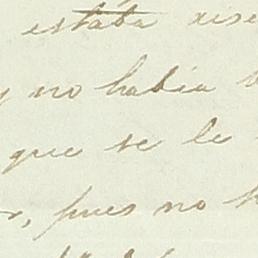 estába
y no había
que se le
pues no